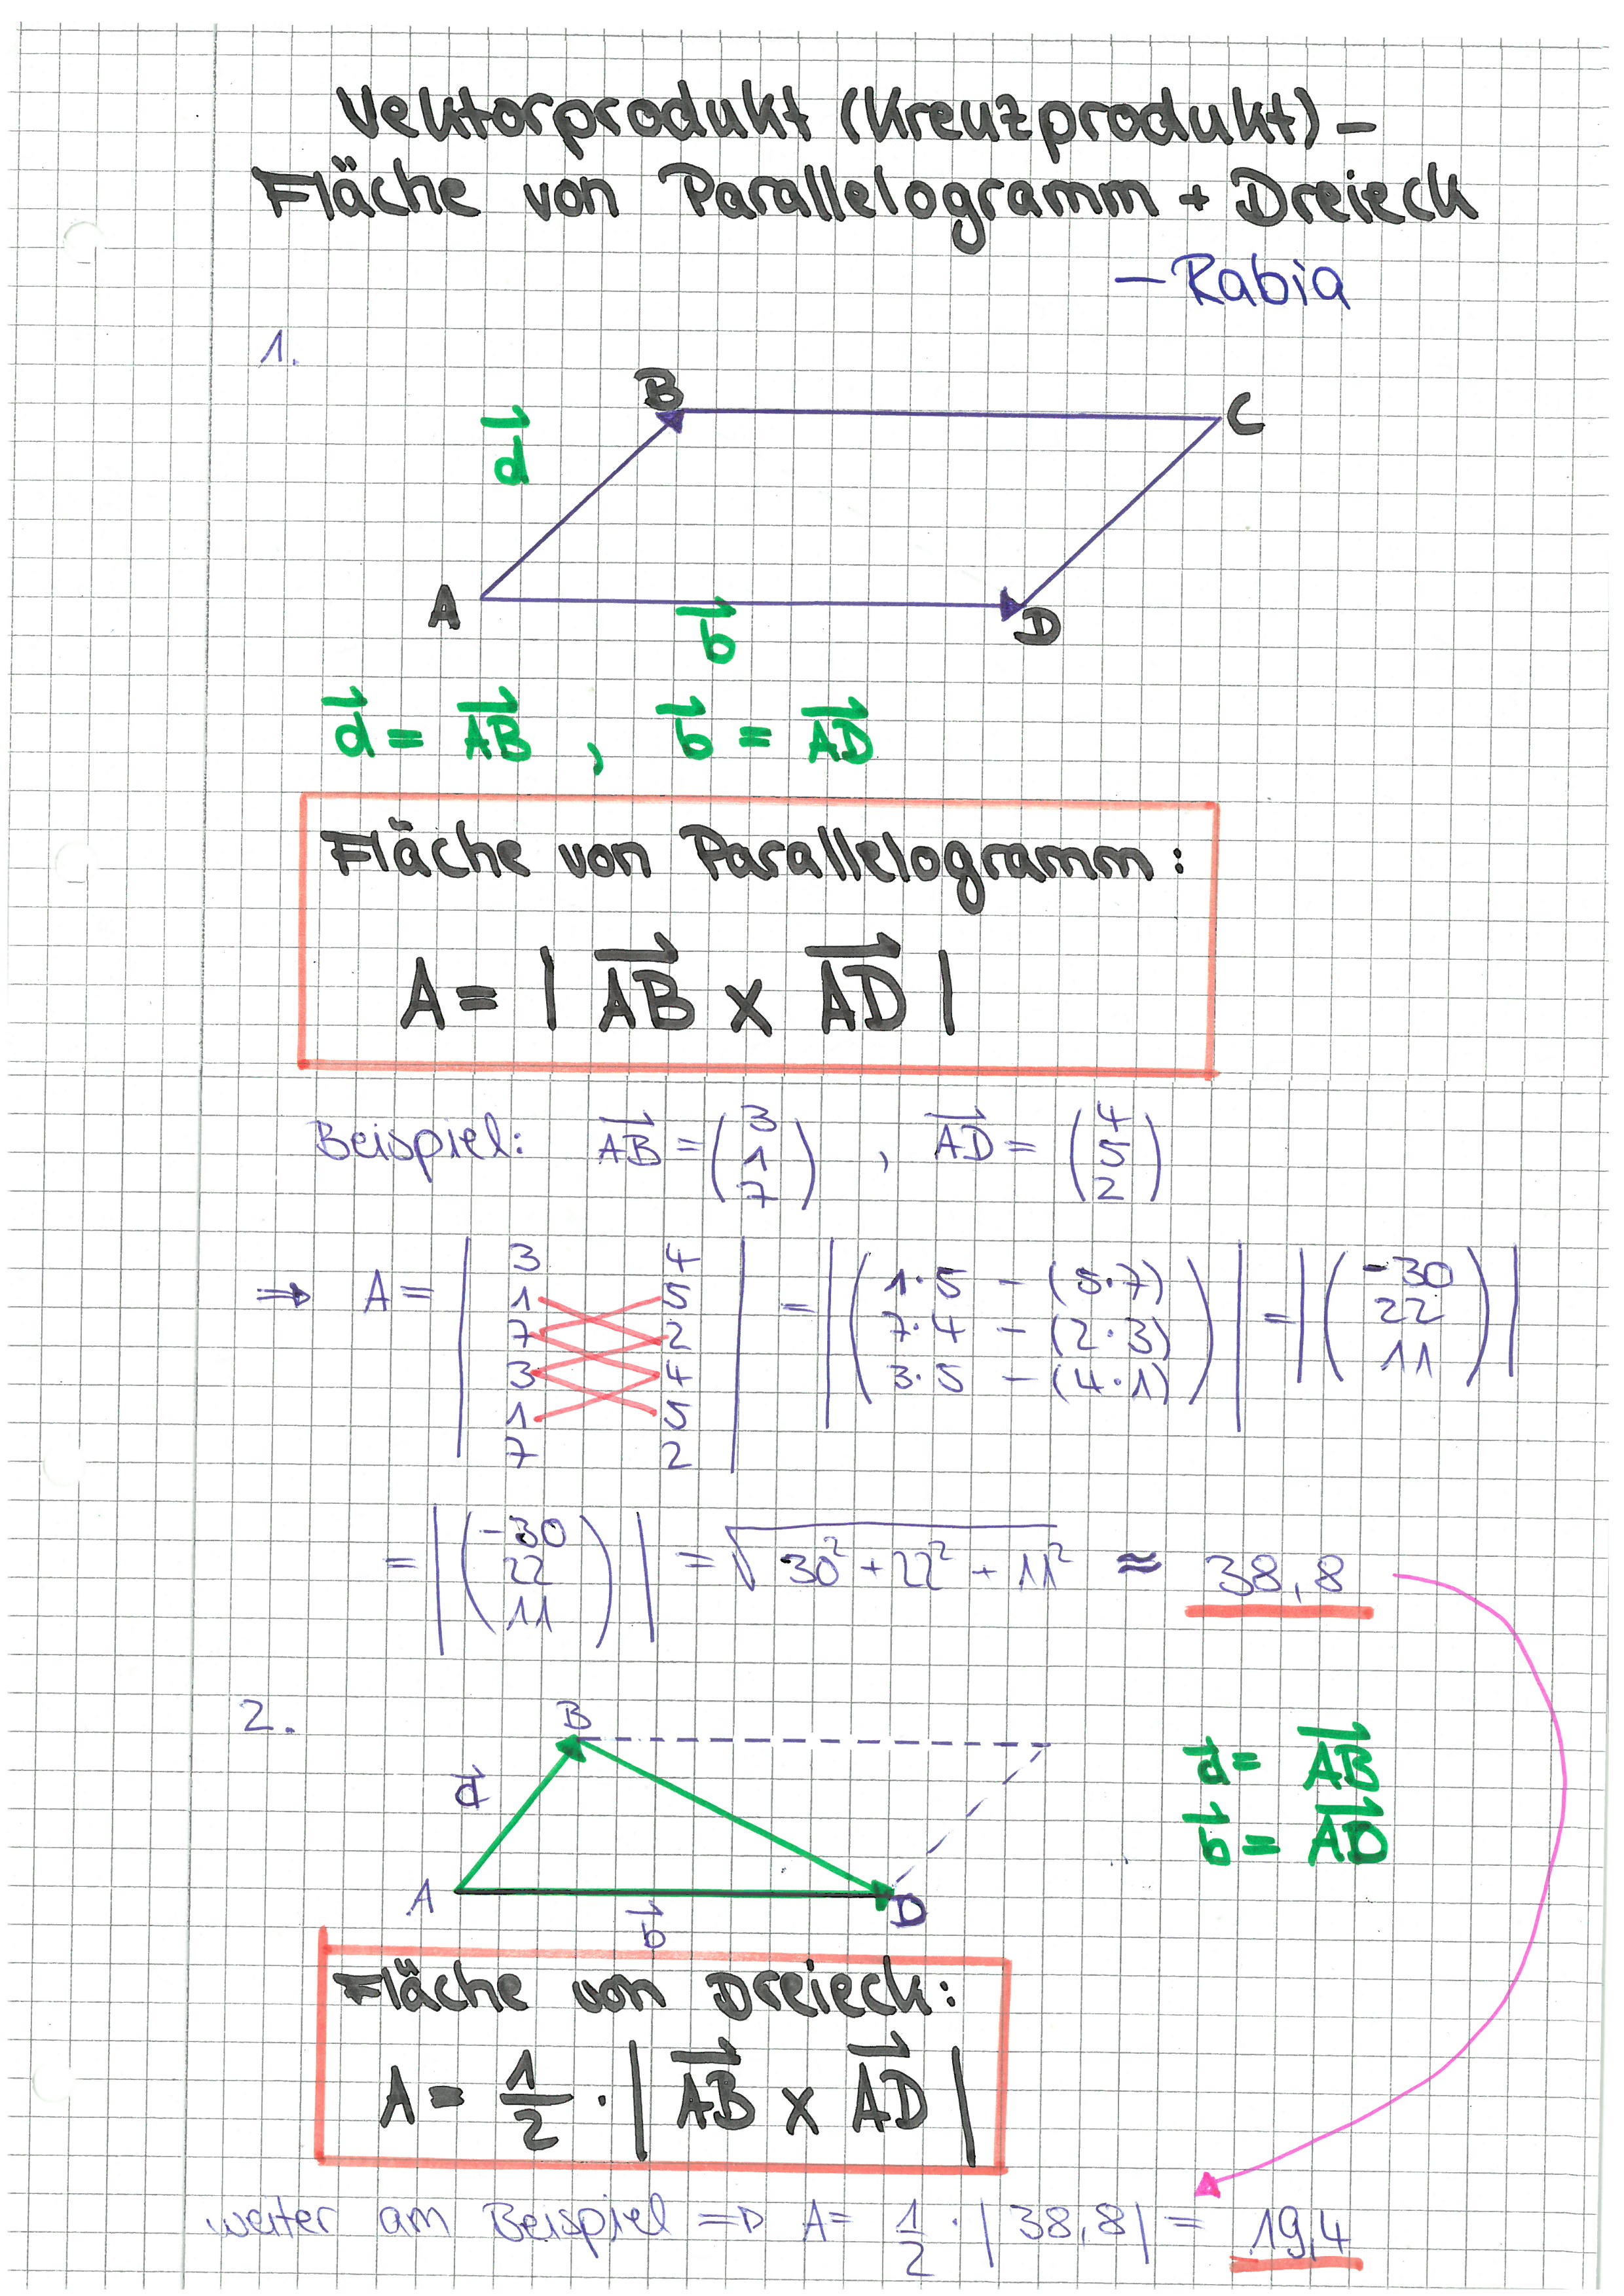 Vektorprodukt (Kreuzprodukt) –
Fläche von Parallelogramm + Dreieck
– Rabia
1.
B
C
d⃗
A
D
b⃗
d⃗ = A͞B⃗ , b⃗ = A͞D⃗
Fläche von Parallelogramm:
A = | A͞B⃗ x A͞D⃗ |
Beispiel: A͞B⃗ = (3 1 7) , A͞D⃗ = (4 5 2)
3 4
1 5
⇒ A = | 7 2 | = |(1·5 – (5·7) 7·4 – (2·3) 3·5 – (4·1))| = |(-30 22 11)|
3 4
1 5
7 2
= |(-30 22 11)| = √30² + 22² + 11² ≈ 38,8
2.
B
d⃗
d⃗ = A͞B⃗
b⃗ = A͞D⃗
A
D
b⃗
Fläche von Dreieck:
A = 1/2 · | A͞B⃗ x A͞D⃗ |
weiter am Beispiel ⇒ A = 1/2 · |38,8| = 19,4